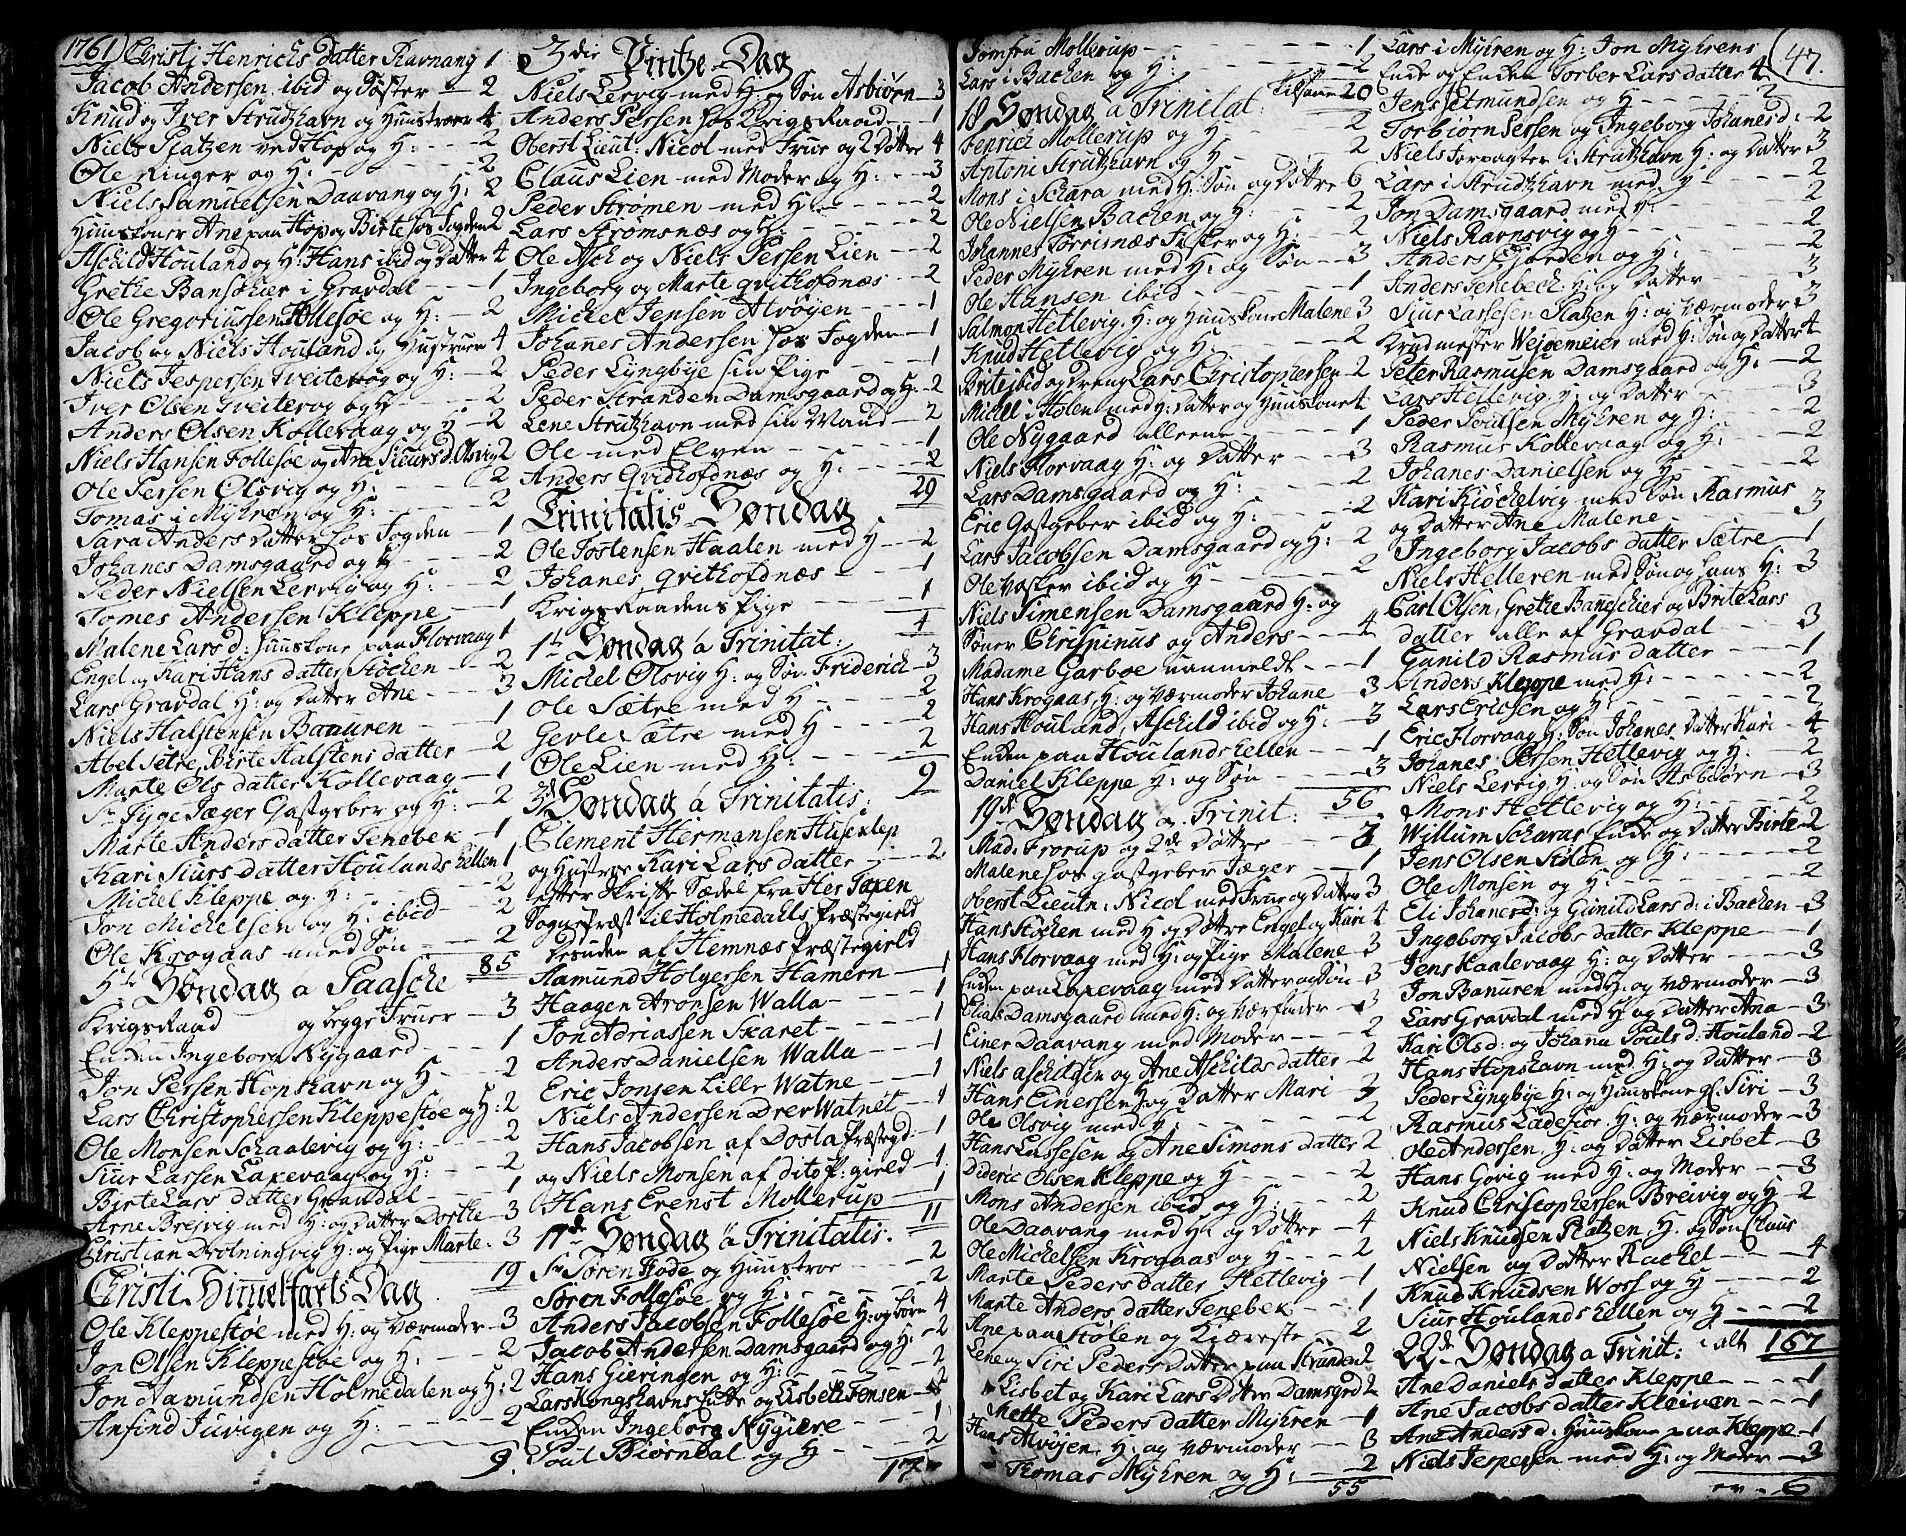 1761) Christi Henrichs datter Ravnang 1
Jacob Andersen ibid og Søster - 2
Knud og Iver Strudshavn og Huustroer 4
Niels Platzen ved Hop og H: - - - 2
Ole Ringer og H: - - - 2
Niels Samuelsen Daavang og H: 2
Huuskoner Ane paa Hop og Birte hos Fogden 2
Aschild Houland og H: Hans ibid og datter 4
Grethe Bansøchier i Gravdal - - 1
Ole Gregoriussen Follesøe og H: - 2
Jacob og Niels Houland og Hustruer 4
Niels Jespersen Tveitevog og H: - 2
Iver Olsen Tveitevog og H - - - 2
Anders Olsen Kollevaag og H - 2
Niels Hansen Follesøe og Ane Siursd. Olsvig 2
Ole Persen Olsvig og H: - - - 2
Tomas i Myhren og H: - - - 2
Sara Anders datter hos Fogden - - 1
Johanes Damsgaard og H - - - 2
Peder Nielsen Lervig og H: - - 2
Tomes Andersen Kleppe - - - 1
Malene Lars d: Huuskone paa Florvaag 1
Engel og Kari Hans datter Støchen - 2
Lars Gravdal H: og datter Ane - - - 3
Niels Halstensen Baauren - - - 1
Abel Sætre, Birte Halstens datter - 2
Marte Ols datter Kollevaag - - 1
Sr Jyge Jæger Gastgeber og H: - - 2
Marte Anders datter Tenebek - - 1
Kari Siurs datter Houlands hellen 1
Michel Kleppe og H: - - - 2
Jon Michelsen og H: ibid - - 2
Ole Krogaas med Søn - - - 2
85
5te Søndag a Paasche
Krigs Raad og begge Fruer - - 3
Enchen Ingeborg Nygaard - - - 1
Jon Persen Hopshavn og H - - - 2
Lars Christophersen Kleppestøe og H: 2
Ole Monsen Schaalevig og H: - - - 2
Siur Lassen Laxevaag og H: - - - 2
Birte Lars datter Gravdal - - - 1
Arne Breivig med H: og datter Dorthe - 3
Christian Drotningsvig H: og Pige Marte - 3
19
Christi Himmelfarts Dag
Ole Kleppestøe med H: og Værmoder - 3
Jon Olsen Kleppestøe og H: - - - 2
Jon Aamundsen Holmedalen og H: 2
Anfind Juvigen og H: - - - 2
9.
3die Pintze Dag
Niels Lervig med H: og Søn Asbiørn - 3
Anders Persen hos Krigs Raad - - - 1
Oberst Lieut: Nicol med Frue og 2 Døttre 4
Claus Lien med Moder og H: - - - 3
Peder Strømen med H: - - - 2
Lars Strømsnæs og H: - - - 2
Ole Ash og Niels Persen Lien - - 2
Ingeborg og Marte qvithofdnæs - - 2
Michel Jensen Alvøyen - - - 1
Johanes Andersen hos Fogden - - 1
Peder Lyngbye sin Pige - - - 1
Peder Stranden Damsgaard og H: - 2
Lene Strutzhavn med sin Mand - - 2
Ole med Elven - - - 1
Anders Qvidhofdnæs og H: - - - 2
29
Trinitatis Søndag
Ole Tostensen Haalen med H - - 2
Johanes Qvithofdnæs - - - 1
Krigs Raadens Pige - - - 1
4
1te Søndag a Trinitat:
Michel Olsvig H: og Søn Friderich - 3
Ole Sætre med H - - - 2
Gevle Sætre med H - - - 2
Ole Lien med H: - - - 2
9
3de Søndag a Trinitatis:
Clement Hermansen Huseklep
og Hustroe Kari Lars datter - - 2
efter Skriftte Sædel fra Her Taxen
Sognepræst til Holmedahls Præstegield
desuden af Hemnæs Præstegield
Aamund Holgersen Hamern - - 1
Haagen Aronsen Walla - - - 1
Jon Adriassen Skaret - - - 1
Anders Danielsen Walla - - - 1
Eric Jonsen Lille Watne - - - 1
Niels Andersen Drer Watnet - - 1
Hans Jacobsen af Dosta Præstegd. - 1
og Niels Monsen af dito P: gield - 1
Hans Ernst Mollerup - - - 1
11
17de Søndag a Trinitatis:
Sr Søren Fode og Huustroe - - - 2
Søren Follesøe og H: - - - 2
Anders Jacobsen Follesøe H: og Børn 4
Jacob Andersen Damsgaard og H: - 2
Hans Gieringen og H: - - - 2
Lars Kongshavns Encke og Lisbeth Tonsen
Enchen Ingeborg Nygiere - - - 1
Poul Biørndal og H - - - 2
17
Jomfru Mollerup - - - 1
Lars i Bachen og H: - - - 2
tilsam̄en 20
18 Søndag a Trinitat:
Henrici Mollerup og H - - - 2
Antoni Strutzhavn og H - - - 2
Mons i Schara med H: Søn og Døttre 6
Ole Nielsen Bachen og H: - - - 2
Johannes Torrisnæs Fisker og H: - 2
Peder Myhren med H: og Søn - - 3
Ole Hansen ibid - - - 1
Salmon Hetlevig, H: og Huuskone Malene 3
Knud Hetlevig og H: - - - 2
Brite ibid og dreng Lars Christophersen - 2
Michel i Holen med H: datter og Huuskone 4
Ole Nygaard alleene - - - 1
Niels Florvaag H: og datter - - 3
Lars Damsgaard og H: - - - 2
Eric Gastgeber ibid og H: - - - 2
Lars Jacobsen Damsgaard og H: 2
Ole Vasker ibid og H - - - 2
Niels Simensen Damsgaard H: og
Søner Chrispinus og Anders - - - 4
Madame Garboe uanmeldt - - 1
Hans Krogaas, H: og Værmoder Johane 3
Hans Houland, Aschild ibid og H: - 3
Enchen paa Houlandshellen - - 1
Daniel Kleppe H: og Søn - - - 3
56
19de Søndag a Trinit:
Mad: Frorup og 2de Døttre - - 3
Malene hos gastgeber Jæger - - 1
Oberst Lieutn: Nicol med Frue og datter 3
Hans Støchen med H og Døttre Engel og Kari 4
Hans Florvaag med H: og Pige Malene 3
Enchen paa Laxevaag med datter og Søn 3
Elias Damsgaard med H: og Værfader - 3
Einer Daavang med Moder - - 2
Niels Aschildsen og Ane Aschilds datter 2
Hans Einersen H: og datter Mari 3
Ole Olsvig med H: - - - 2
Hans Lassesen og Ane Simons datter 2
Dideric Olsen Kleppe og H - - - 2
Mons Andersen ibid og H: - - - 2
Ole Daavang med H: og Døttre - 4
Ole Michelsen Krogaas og H - - 2
Marte Peders datter Hetlevig - 1
Marte Anders datter Tenebek - - 1
Ane paa Stølen og Kiæreste - - 2
Lene og Siri Peders datter paa Stranden 2
Lisbet og Kari Lars Døtter Damsgrd 2
Mette Peders datter Myhren - 1
Hans Alvøjen, H: og Værmoder - - 3
Thomas Myhren og H: - - 2
55
47.
Lars i Myhren og H: Jon Myhrens
Encke og Enchen Torber Lars datter 4
Jens Setmundsen og H - - - 2
Torbiørn Persen og Ingeborg Johanesd: - 2
Niels Forpagter i Strutzhavn H: og datter 3
Lars i Strudtshavn med H - - - 2
Jon Damsgaard med H: - - - 2
Niels Ravnsvig og H - - - 2
Anders Gjorden og H: - - - 2
Anders Tenebech H: og datter - - 3
Siur Lassesen Platzen H: og Værmoder 3
Krudmester Wejdemeier med H: Søn og datter 4
Peter Rasmusen Damsgaard og H: - 2
Lars Hellevig, H: og datter - - 3
Peder Poulsen Myhren og H: - - 2
Rasmus Kollevaag og H: - - - 2
Johanes Danielsen og H - - - 2
Kari Kiøchelvig med Søn Rasmus
og datter Ane Malene - - - 3
Ingeborg Jacobs datter Sætre - - 1
Niels Helleren med Søn og hans H: 3
Carl Olsen, Grethe Bansøchier og Brite Lars
datter alle af Gravdal - - - 3
Gunild Rasmus datter - - - 1
Anders Kleppe med H: - - - 2
Lars Ericsen og H: - - - 2
Eric Florvaag H: Søn Johanes, datter Kari - 4
Johanes Persen Hetlevig og H: - 2
Niels Lervig H: og Søn Asbiørn - 3
Mons Hetlevig og H: - - - 2
Willum Scharas Encke og datter Birte - 2
Jens Olsen Stdøn og H: - - - 2
Ole Monsen og H: - - - 2
Eli Johanesd: og Gunild Lars d: i Bachen - 3
Ingeborg Jacobs datter Kleppe - - 1
Jens Haalevaag H: og datter - - - 3
Jon Banuren med H: og Værmoder - 3
Lars Gravdal med H og datter Ana - 3
Kari Ols d: og Johana Pouls d: Houland - 2
Hans Hopshavn med H: og datter - 3
Peder Lyngbye H: og Huuskone gl. Siri - 3
Rasmus Ladefior H: og Værmoder - 3
Ole Andersen, H: og datter Lisbet - 3
Hans Govig med H: og Moder - - 3
Knud Christophersen Breivig og H 2
Niels Knudsen Platzen, H: og Søn Claus
Nielsen og datter Rachel - - - 4
Knud Knudsen Worf og H - - - 2
Siur Houlands hellen og H - - - 2
22de Søndag a Trinit: i alt 167
Ane Daniels datter Kleppe - - - 1
Ane Jacobs datter Kleiven - - - 1
Ane Anders d. Huuskone paa Kleppe - 1
Niels Jespersen med H: og Moder - 3
6